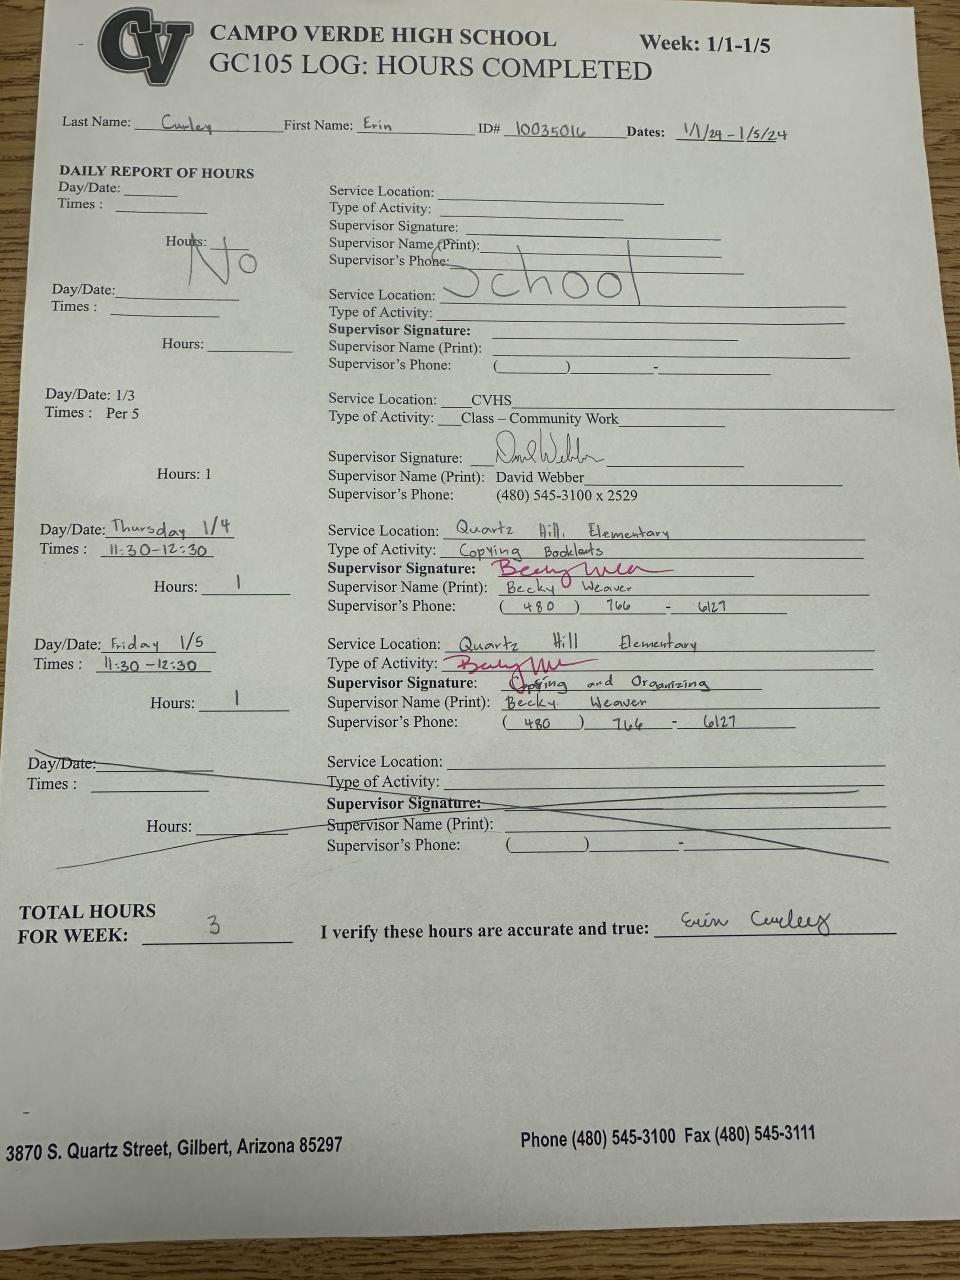 CV CAMPO VERDE HIGH SCHOOL Week: 1/1-1/5
GC105 LOG: HOURS COMPLETED
Last Name: Curley First Name: Erin ID# 10035016 Dates: 1/1/24 - 1/5/24
DAILY REPORT OF HOURS
Day/Date: Service Location:
Times : Type of Activity:
Supervisor Signature:
Hours: Supervisor Name (Print):
Supervisor's Phone:
No School
Day/Date: Service Location:
Times : Type of Activity:
Supervisor Signature:
Hours: Supervisor Name (Print):
Supervisor's Phone: ( ) -
Day/Date: 1/3 Service Location: CVHS
Times : Per 5 Type of Activity: Class – Community Work
Supervisor Signature: David Webber
Hours: 1 Supervisor Name (Print): David Webber
Supervisor's Phone: (480) 545-3100 x 2529
Day/Date: Thursday 1/4 Service Location: Quartz Hill Elementary
Times : 11:30-12:30 Type of Activity: Copying Booklets
Supervisor Signature: Becky Weaver
Hours: 1 Supervisor Name (Print): Becky Weaver
Supervisor's Phone: ( 480 ) 766 - 6127
Day/Date: Friday 1/5 Service Location: Quartz Hill Elementary
Times : 11:30-12:30 Type of Activity: Becky
Supervisor Signature: Copying and Organizing
Hours: 1 Supervisor Name (Print): Becky Weaver
Supervisor's Phone: ( 480 ) 766 - 6127
Day/Date: Service Location:
Times : Type of Activity:
Supervisor Signature:
Hours: Supervisor Name (Print):
Supervisor's Phone: ( ) -
TOTAL HOURS
FOR WEEK: 3 I verify these hours are accurate and true: Erin Curley
3870 S. Quartz Street, Gilbert, Arizona 85297 Phone (480) 545-3100 Fax (480) 545-3111